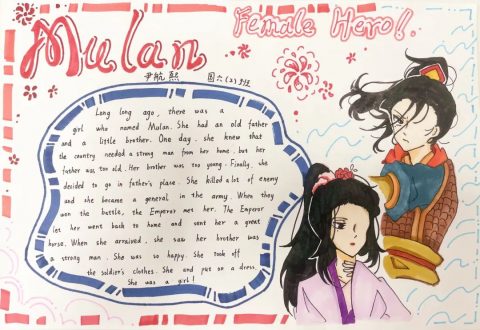 Mulan
Female Hero!
尹航熙 国六(2)班
Long long ago, there was a
girl who named Mulan. She had an old father
and a little brother. One day, she knew that
the country needed a strong man from her home, but her
father was too old. Her brother was too young. Finally, she
decided to go in father's place. She killed a lot of enemy
and she became a general in the army. When they
won the battle, the Emperor met her. The Emperor
let her went back to home and sent her a great
horse. When she arraived, she saw her brother was
a strong man. She was so happy. She took off
the soldier's clothes. She and put on a dress.
She was a girl!